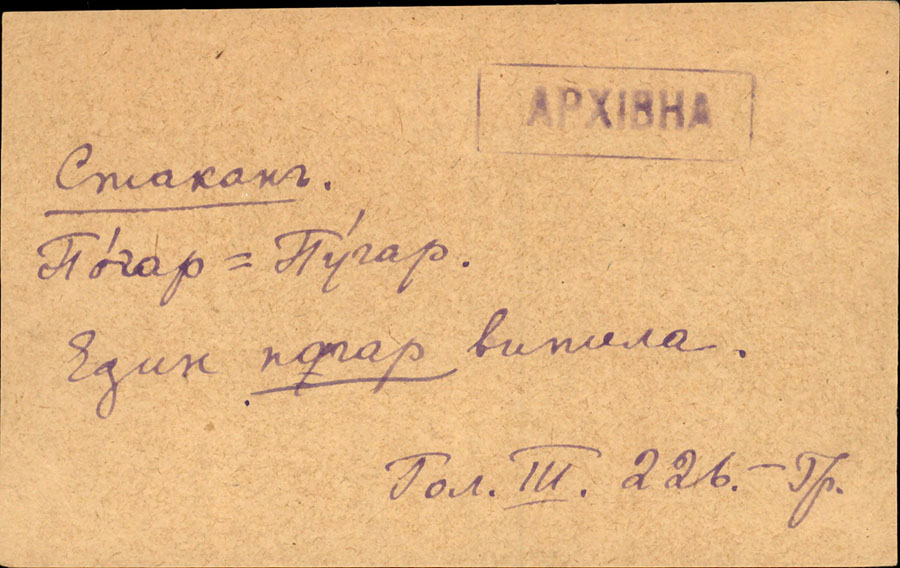 АРХІВНА
Стаканъ.
По́гар = Пу́гар.
Един погар випила.
Гол. III. 226. – Гр.